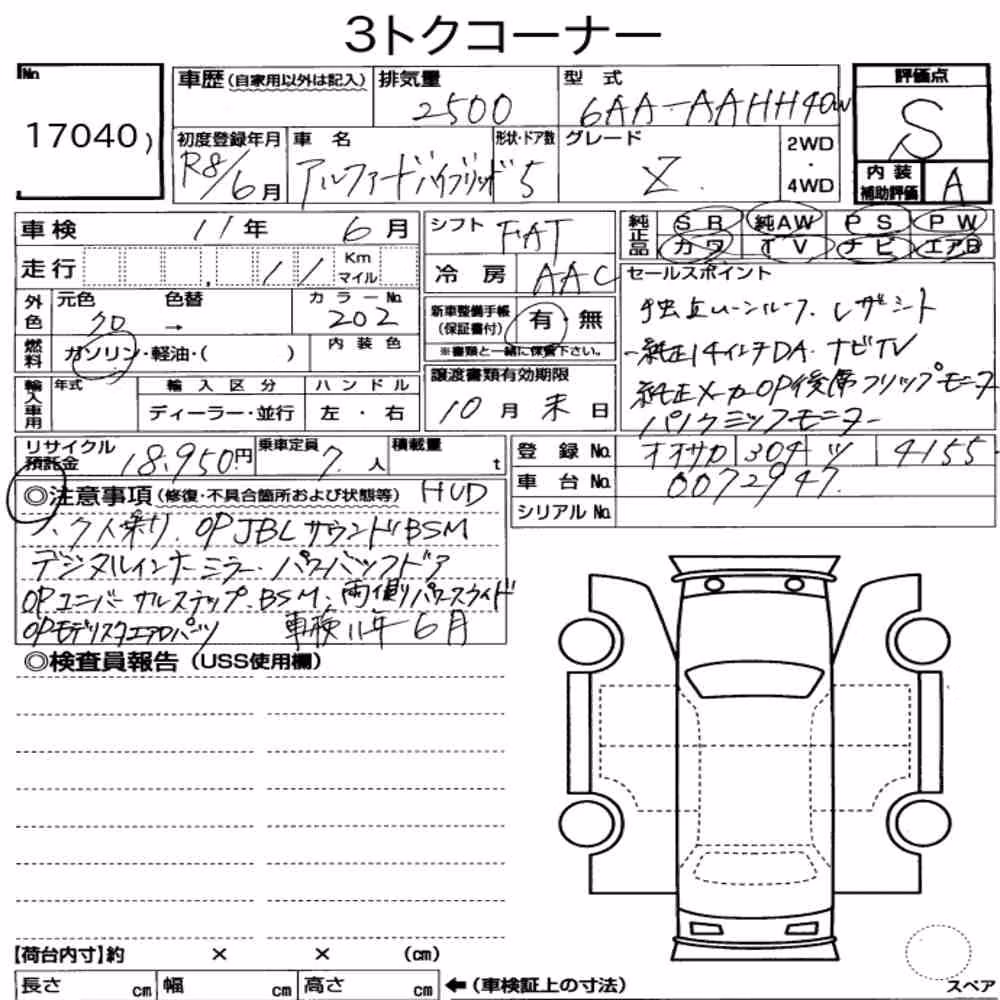 3トクコーナー
No 17040
車歴（自家用以外は記入）
排気量 2500
型式 6AA-AAHH40W
評価点 S
初度登録年月 R8/6月
車名 アルファードハイブリッド
形状・ドア数 5
グレード Z
2WD・4WD
内装補助評価 A
車検 11年 6月
シフト FAT
純正品 SR 純AW PS PW
カワ TV ナビ エアB
走行 11 Km マイル
冷房 AAC
セールスポイント
独立ムーンルーフ. レザーシート
純正14インチDA. ナビTV
純正メーカーOP後席フリップモニター
パノラミックモニター
外色 元色 クロ → 色替
カラーNo. 202
新車整備手帳（保証書付） 有・無
※書類と一緒に保管下さい。
燃料 ガソリン・軽油・( )
内装色
輸入車用 年式 輸入区分 ハンドル
ディーラー・並行 左・右
譲渡書類有効期限
10月末日
リサイクル預託金 18,950円
乗車定員 7人
積載量 t
登録No. オオサカ 304 ツ 4155
車台No. 0072947
シリアルNo.
◎注意事項（修復・不具合箇所および状態等） HUD
7人乗り. OP JBLサウンド BSM
デジタルインナーミラー. パワーバックドア
OPユニバーサルステップ. BSM. 両側パワースライド
OPモデリスタエアロパーツ 車検11年6月
◎検査員報告（USS使用欄）
【荷台内寸】約 × × （cm）
長さ cm 幅 cm 高さ cm ←（車検証上の寸法）
スペア